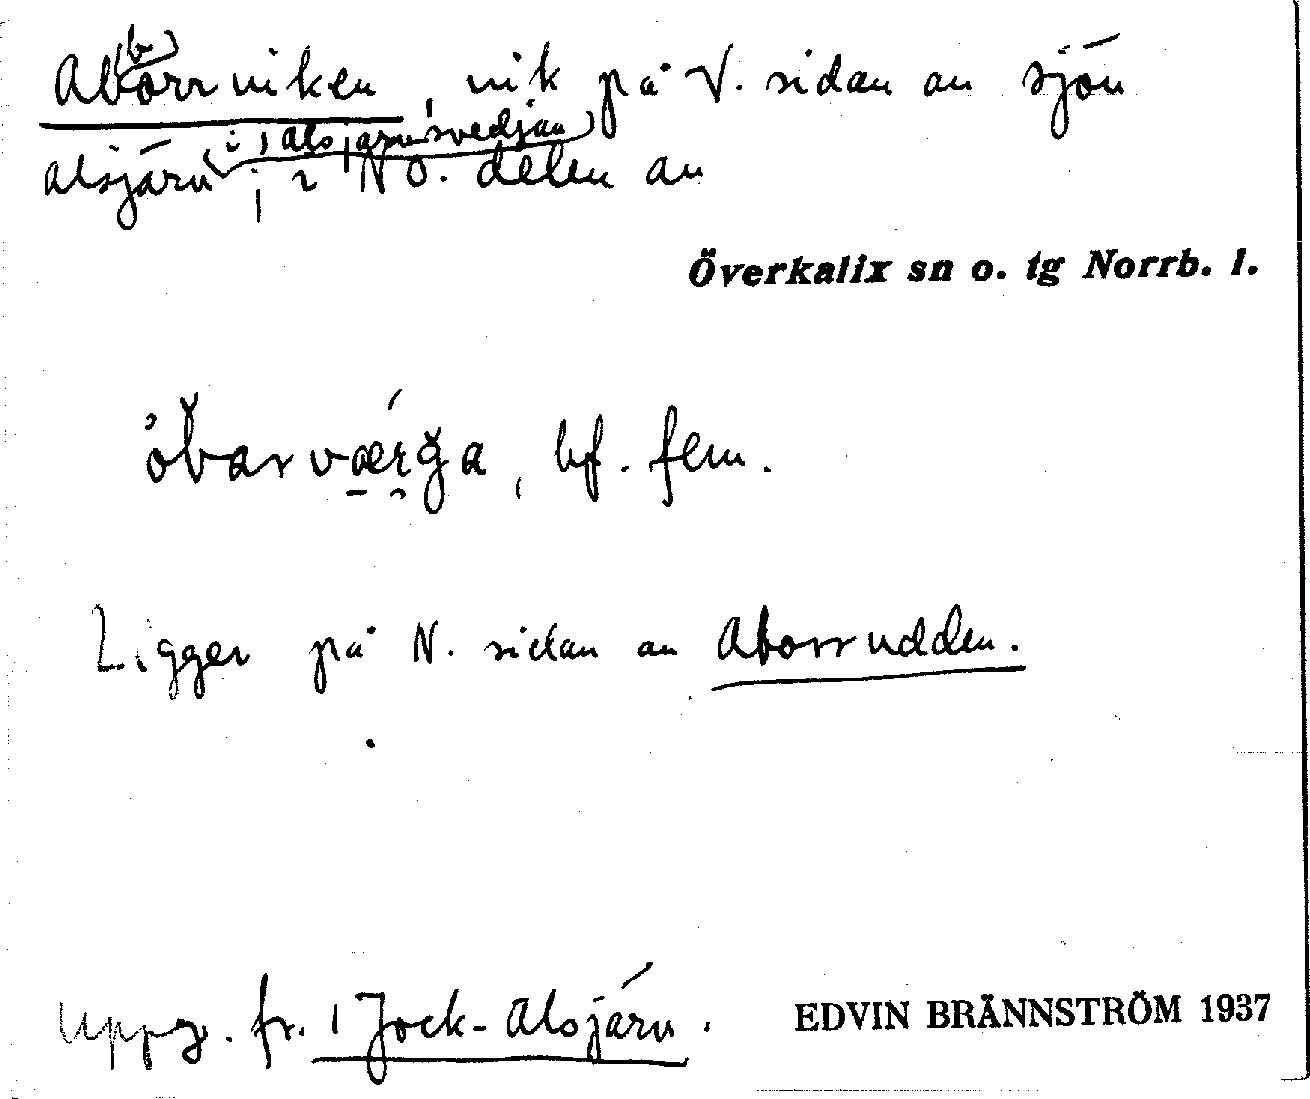 Ab(b)orrviken, vik på V. sidan av sjön
Alsjärv (i Alsjärvsvedjan)
; i NO. delen av
Överkalix sn o. tg Norrb. l.
bf. fem.
Ligger på N. sidan av Aborrudden.
Uppg. fr. Jock-Alsjärv.
EDVIN BRÄNNSTRÖM 1937